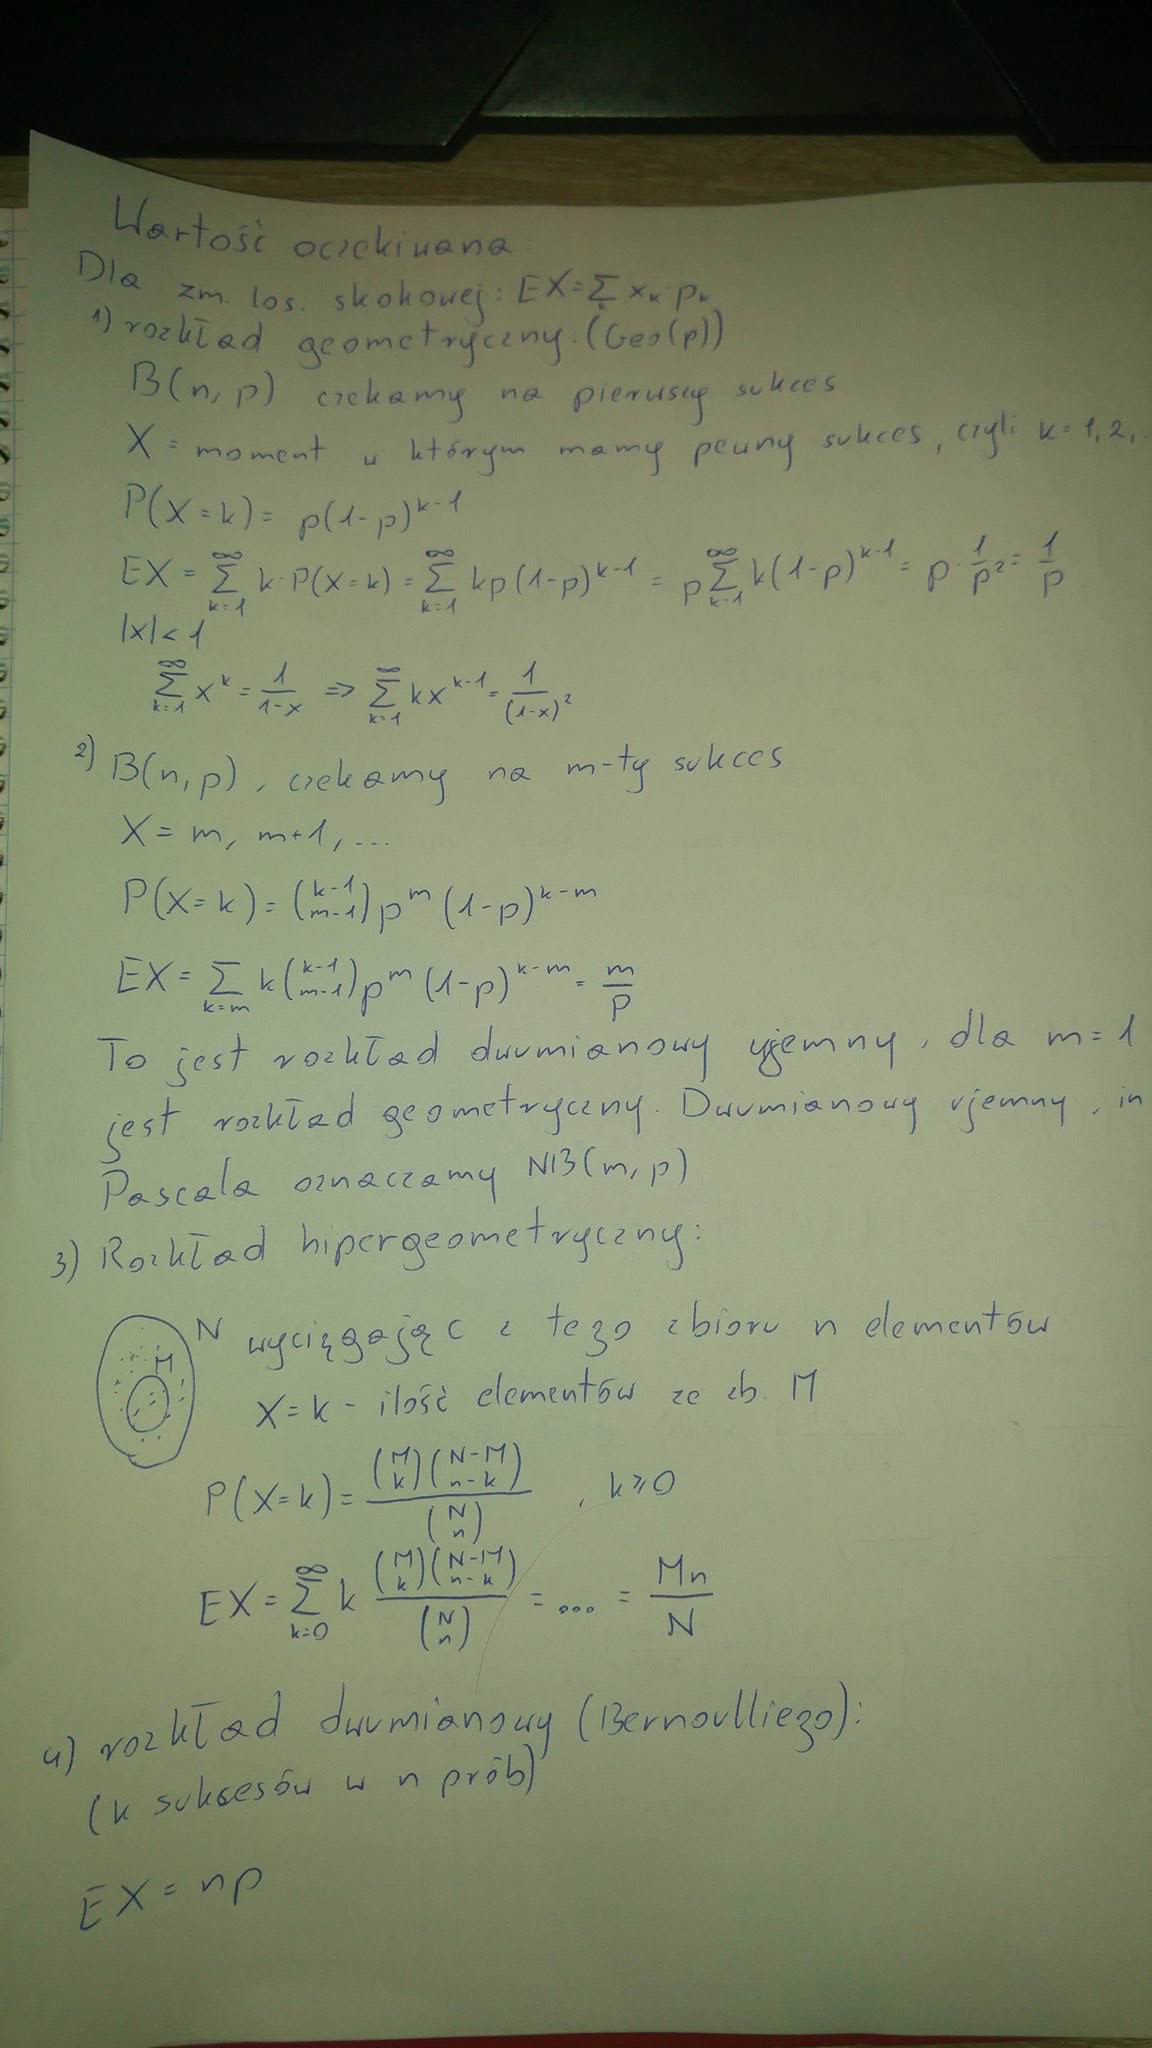 Wartość oczekiwana
Dla zm. los. skokowej: EX = Σ_k x_k · p_k
1) rozkład geometryczny. (Geo(p))
B(n, p) czekamy na pierwszy sukces
X = moment w którym mamy pewny sukces, czyli k = 1, 2, .
P(X = k) = p(1-p)^{k-1}
EX = Σ_{k=1}^{∞} k · P(X = k) = Σ_{k=1}^{∞} kp(1-p)^{k-1} = p Σ_{k=1}^{∞} k(1-p)^{k-1} = p · 1/p² = 1/p
|x| < 1
Σ_{k=1}^{∞} x^k = 1/(1-x) => Σ_{k=1}^{∞} kx^{k-1} = 1/(1-x)²
2) B(n, p), czekamy na m-ty sukces
X = m, m+1, ...
P(X = k) = (k-1 m-1) p^m (1-p)^{k-m}
EX = Σ_{k=m} k (k-1 m-1) p^m (1-p)^{k-m} = m/p
To jest rozkład dwumianowy ujemny, dla m = 1
jest rozkład geometryczny. Dwumianowy ujemny, in
Pascala oznaczamy NB(m, p)
3) Rozkład hipergeometryczny:
N wyciągając z tego zbioru n elementów
M
X = k - ilość elementów ze zb. M
P(X = k) = (M k)(N-M n-k) / (N n) , k ≥ 0
EX = Σ_{k=0}^{∞} k (M k)(N-M n-k) / (N n) = ... = Mn/N
4) rozkład dwumianowy (Bernoulliego):
(k sukcesów w n prób)
EX = np